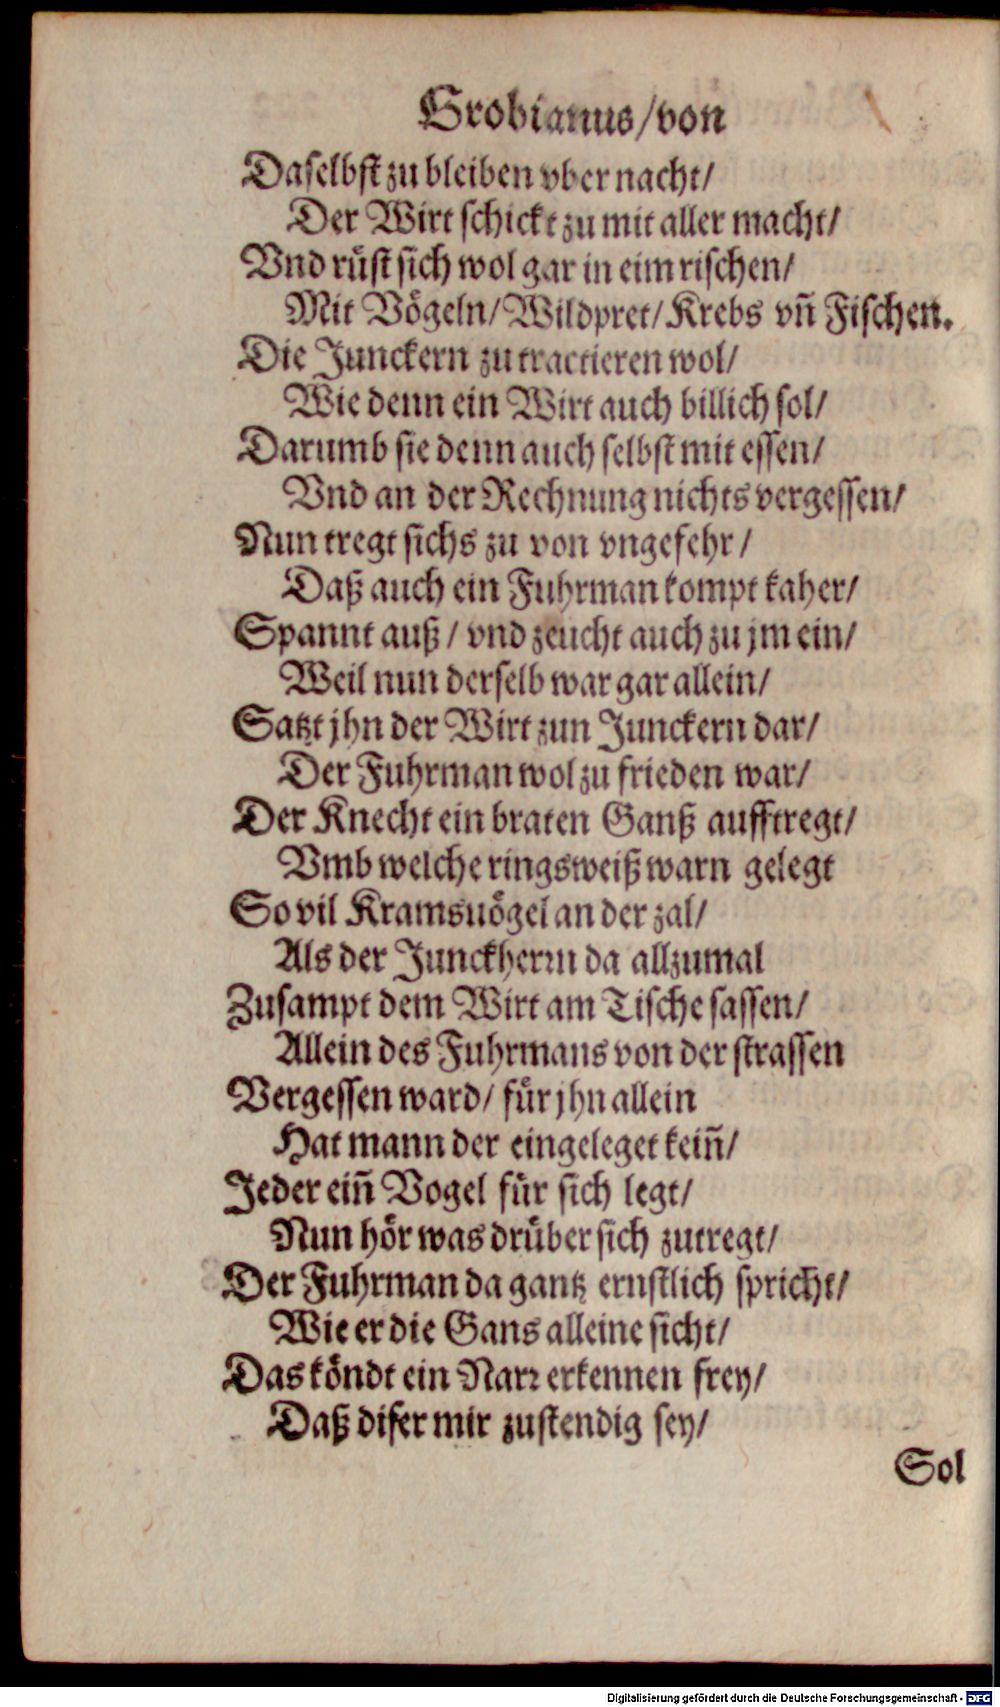 Grobianus/von
Daselbst zu bleiben vber nacht/
Der Wirt schickt zu mit aller macht/
Vnd rüst sich wol gar in eim rischen/
Mit Vögeln/ Wildpret/ Krebs vñ Fischen.
Die Junckern zu tractieren wol/
Wie denn ein Wirt auch billich sol/
Darumb sie denn auch selbst mit essen/
Vnd an der Rechnung nichts vergessen/
Nun tregt sichs zu von vngefehr/
Daß auch ein Fuhrman kompt kaher/
Spannt auß/ vnd zeucht auch zu jm ein/
Weil nun derselb war gar allein/
Satzt jhn der Wirt zun Junckern dar/
Der Fuhrman wol zu frieden war/
Der Knecht ein braten Ganß aufftregt/
Vmb welche ringsweiß warn gelegt
So vil Kramsuögel an der zal/
Als der Junckherrn da allzumal
Zusampt dem Wirt am Tische sassen/
Allein des Fuhrmans von der strassen
Vergessen ward/ für jhn allein
Hat mann der eingeleget keiñ/
Jeder eiñ Vogel für sich legt/
Nun hör was drüber sich zutregt/
Der Fuhrman da gantz ernstlich spricht/
Wie er die Gans alleine sicht/
Das köndt ein Narr erkennen frey/
Daß diser mir zustendig sey/
Sol
Digitalisierung gefördert durch die Deutsche Forschungsgemeinschaft - DFG